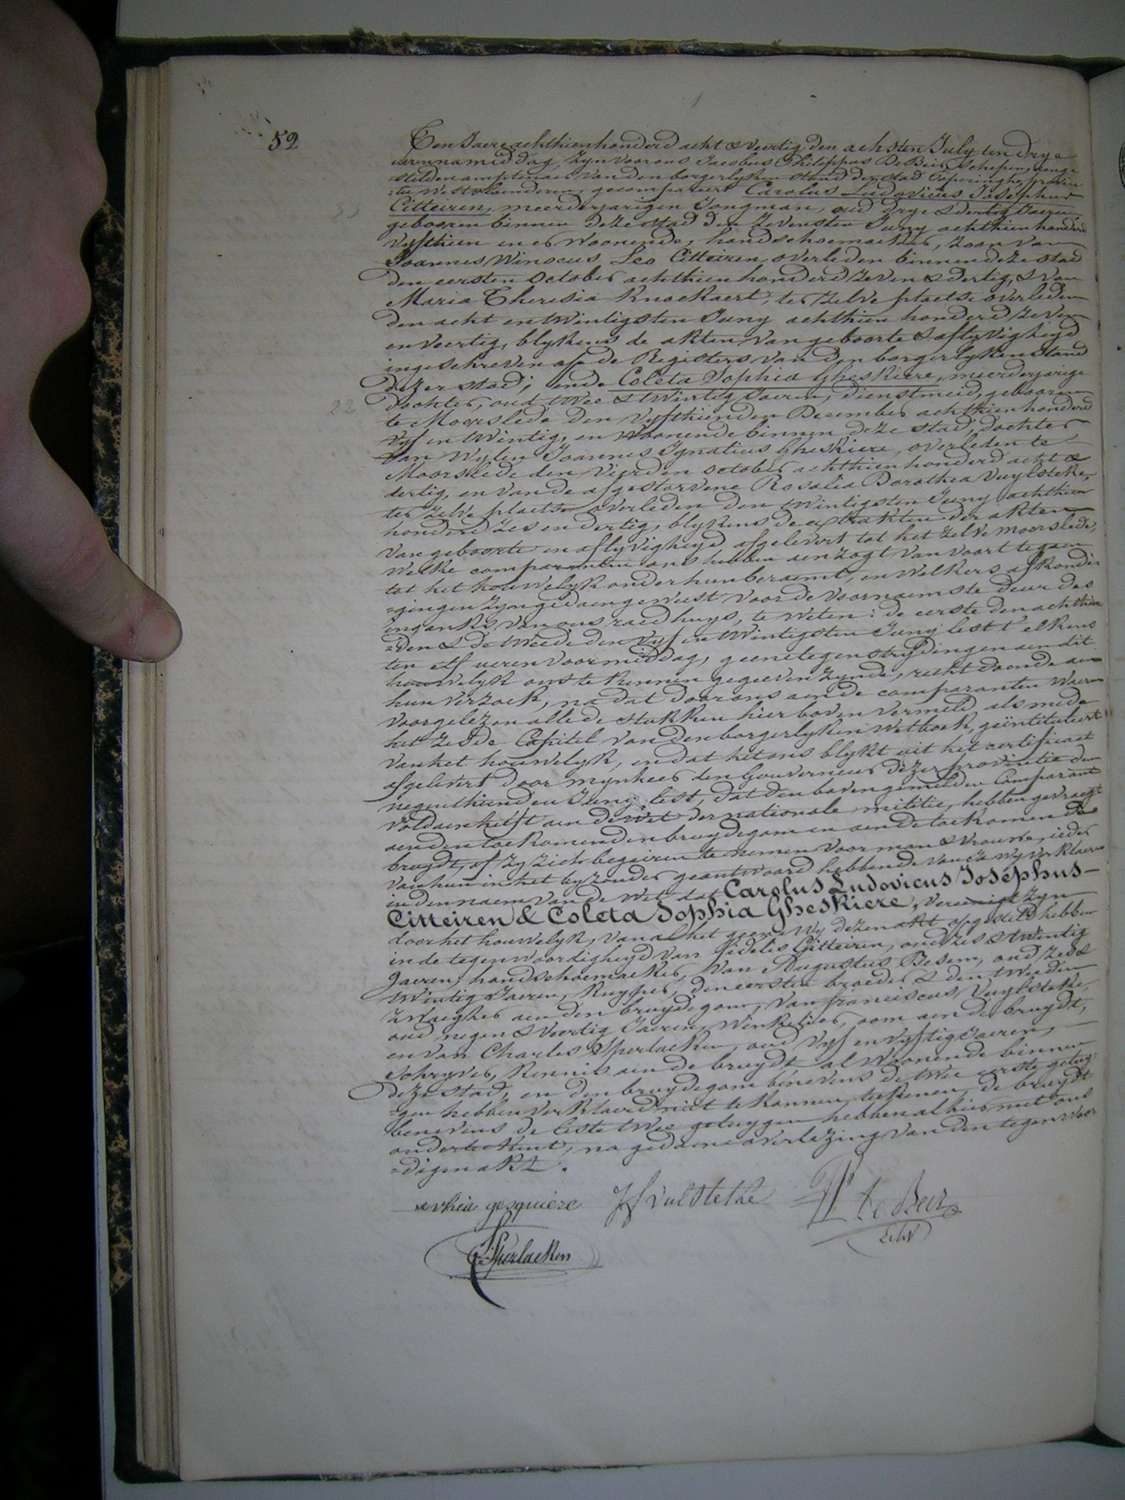 52
Ten Jaere achthienhonderd acht & veertig den achsten July ten drye
uren namiddag, zyn voor ons Jacobus Philippus De Beir, Schepen,
den amptenaer van den borgerlyken stand der stad Poperinghe, provin
cie Westvlaenderen, gecompareert Carolus Ludovicus Josephus
33
Citteiren, meerderjarigen Jongman, oud drye & dertig Jaeren,
gebooren binnen deze stad den zevensten Juny achthienhonderd
vyfthien en er Woonende, handschoemaeker, zoon van
Joannes Winocus Leo Citteiren, overleden binnen deze stad
den eersten october achthien honderd zeven & dertig, & van
Maria Theresia Knockaert, ter zelve plaetse overleden
den acht en twintigsten Juny achthien honderd zeven
en veertig, blykens de akten van geboorte & aflyvigheyd
ingeschreven op de Registers van den borgerlyken stand
dezer stad; ende Coleta Sophia Gheskiere, meerderjarige
22
dochter, oud twee & twintig Jaeren, dienstmeid, gebooren
te Moorslede den vyfthienden December achthienhonderd
vyf en twintig, en woonende binnen deze stad, dochter
van wylen Joannes Ignatius Gheskiere, overleden te
Moorslede den vierden october achthien honderd acht &
dertig, en van de afgestorvene Rosalia Dorothea Vuylsteke,
ter zelve plaetse overleden den twintigsten Juny achthien
honderd zes en dertig, blykens de extrakten der akten
van geboorte en aflyvigheyd afgelevert tot het zelve Moorslede;
Welke comparanten ons hebben aenzogt van voort te gaen
tot het houwelyk onder hun beraemt, en Welkers afkondi
gingen zyn gedaen geweest voor de voornaemste deur des
ingankx van ons raedhuys, te weten: de eerste den achthien
den & de tweede den vyf en twintigsten Juny lest t'elkens
ten elf ueren voormiddag, geene tegenstrydingen aen dit
houwelyk ons te kennen gegeven zynde, recht doende aen
hun verzoek, na dat door ons aen de comparanten waeren
voorgelezen alle de stukken hier boven vermeld, als mede
het zesde Capitel van den borgerlyken Wetboek, geïntituleert
van het houwelyk, en dat het ons blykt uit het certificaet
afgelevert door mynheer den Gouverneur dezer provintie den
negenthienden Juny lest, dat den bovengemelden Comparant
voldaen heeft aen de Wet der nationale militie, hebben gevraegt
aen den toekomenden bruydegom en aen de toekomende
bruydt, of zy zich begeiren te nemen voor man & vrouwe, ieder
van hun in het byzonder geantwoord hebbende van Ja, wy verklaeren
in den naem van de Wet dat Carolus Ludovicus Joséphus-
Citteiren & Coleta Sophia Gheskiere, vereenigt zyn
door het houwelyk, van al het geene Wy dezen akt opgesteld hebben
in de tegenwoordigheyd van Fidelis Citteiren, oud zes & twintig
Jaeren, handschoemaeker, van Augustus Besem, oud zes &
twintig Jaeren, Kuyper, den eersten broeder & den tweeden
zwaegher aen den bruydegom, van Franciscus Vuylsteke,
oud negen & veertig Jaeren, Winkelier, oom aen de bruydt,
en van Charles Sperlaeken, oud vyf en vyftig Jaeren,
schryver, Kennis aen de bruydt, al woonende binnen
deze stad, en den bruydegom benevens de twee eerste getuy
gen hebben verklaerd niet te konnen teekenen, de bruydt
benevens de leste twee getuygen hebben alhier met ons
onderteekent, na gedaene overlezing van den tegenwoor
digen akt.
sophia gesquiere
Vulsteke
De Beir
Sperlaeken